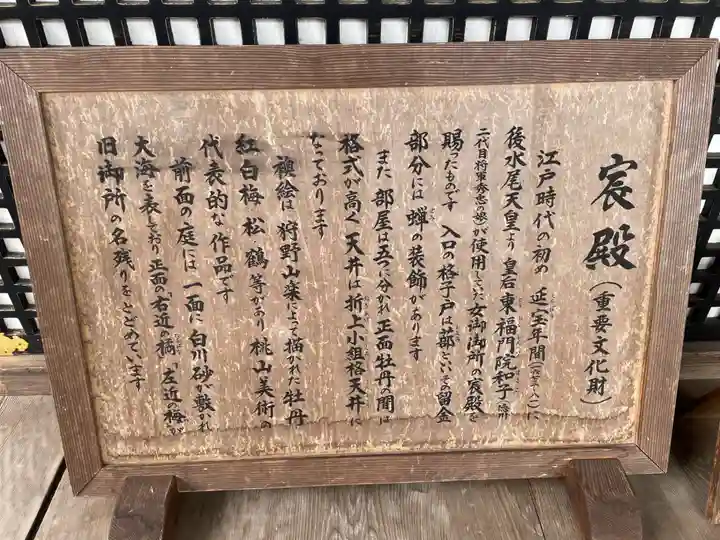 宸殿(重要文化財)
江戸時代の初め 延宝年間
後水尾天皇より 皇后 東福門院和子(徳川
二代目将軍秀忠の娘)が使用していた女御御所の宸殿を
賜ったものです 入口の格子戸は蔀といいその留金
部分には 蝉の装飾があります
また 部屋は五つに分かれ 正面 牡丹の間は
格式が高く 天井は 折上小組格天井に
なっております
襖絵は 狩野山楽によって描かれた 牡丹
紅白梅 松 鶴 等があり 桃山美術の
代表的な作品です
前面の庭には 一面に 白川砂が敷かれ
大海を表しており 正面の「右近の橘」「左近の梅」が
旧御所の名残りをとどめています